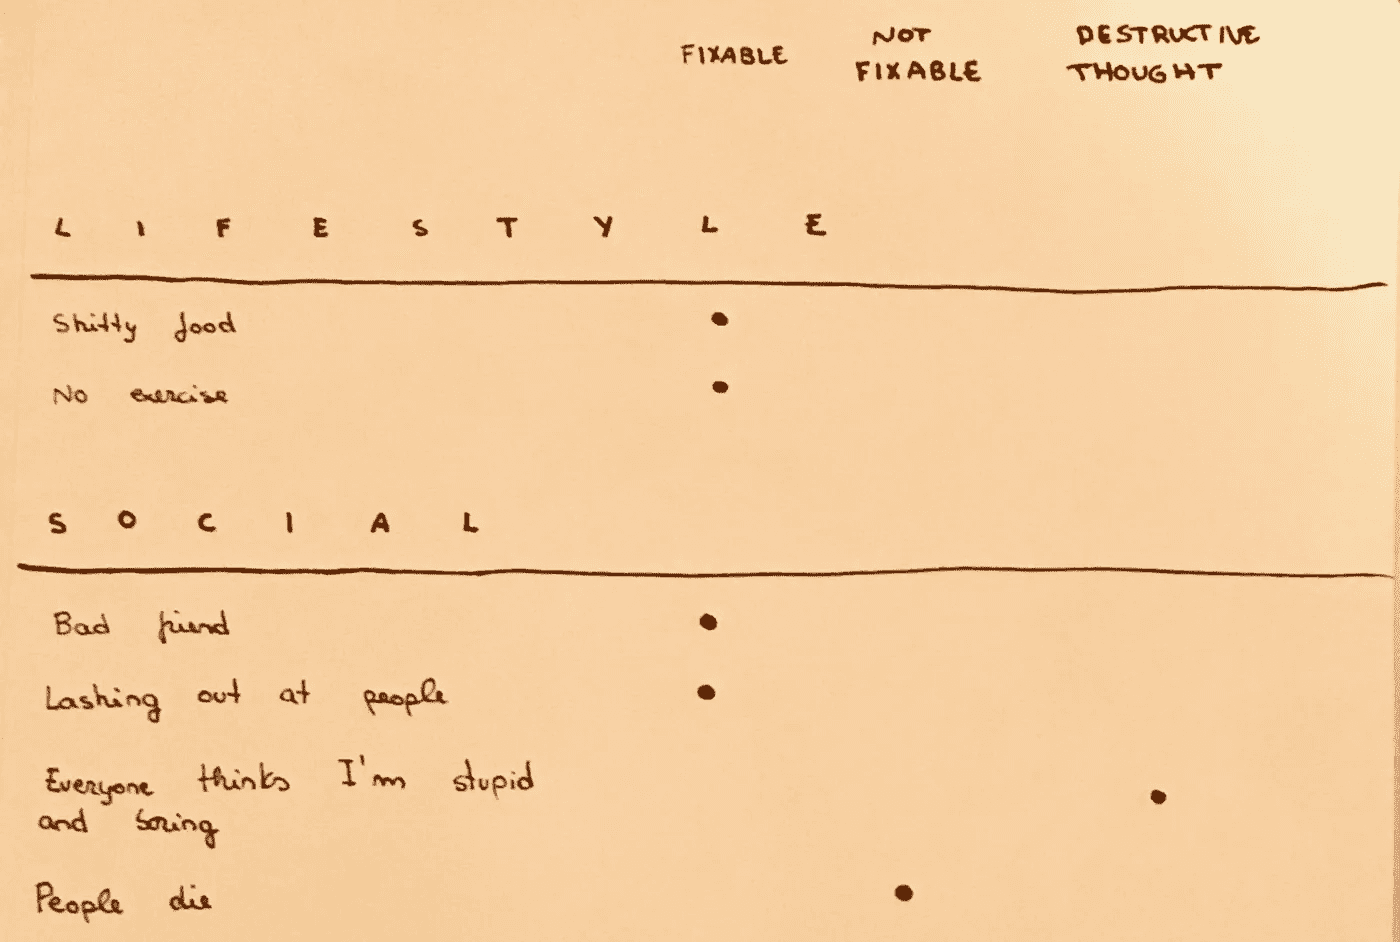 FIXABLE
NOT
FIXABLE
DESTRUCTIVE
THOUGHT
LIFESTYLE
Shitty food
No exercise
SOCIAL
Bad friend
Lashing out at people
Everyone thinks I'm stupid
and boring
People die